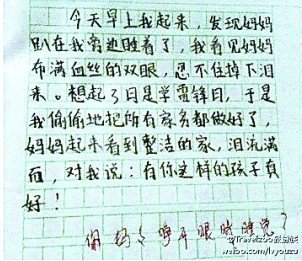 今天早上我起来，发现妈妈
趴在我旁边睡着了，我看见妈妈
布满血丝的双眼，忍不住掉下泪
来。想起了3日是学雷锋日，于是
我偷偷地把所有家务都做好了，
妈妈起来看到整洁的家，泪流满
面，对我说：有你这样的孩子真
好！
你妈妈睁开眼睛睡觉？
@Travelzoo旅游族
http://weibo.com/lvyouzu